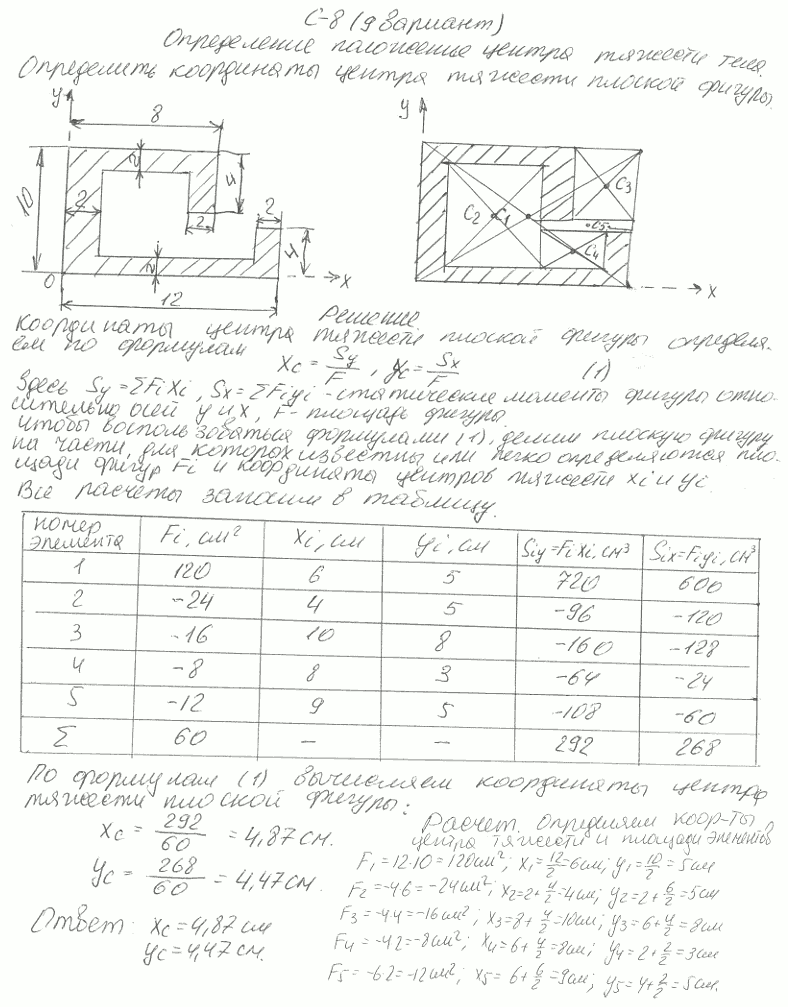 С-8 (9 вариант)
Определение положение центра тяжести тела.
Определить координаты центра тяжести плоской фигуры.
y
8
2
4
10
2
2
2
4
2
0
x
12
y
C3
C2
C1
C5
C4
x
Решение
Координаты центра тяжести плоской фигуры определя-
ем по формулам
Xc = Sy/F, yc = Sx/F (1)
Здесь Sy = ΣFiXi, Sx = ΣFiyi - статические моменты фигуры отно-
сительно осей y и x, F - площадь фигуры
Чтобы воспользоваться формулами (1), делим плоскую фигуру
на части, для которых известны или легко определяются пло-
щади фигур Fi и координаты центров тяжести xi и yi
Все расчеты заносим в таблицу.
номер элемента | Fi, см² | Xi, см | yi, см | Siy=FiXi, см³ | Six=Fiyi, см³
1 | 120 | 6 | 5 | 720 | 600
2 | -24 | 4 | 5 | -96 | -120
3 | -16 | 10 | 8 | -160 | -128
4 | -8 | 8 | 3 | -64 | -24
5 | -12 | 9 | 5 | -108 | -60
Σ | 60 | — | — | 292 | 268
По формулам (1) вычисляем координаты центра
тяжести плоской фигуры:
Xc = 292/60 = 4,87 см.
yc = 268/60 = 4,47 см.
Ответ: Xc = 4,87 см
yc = 4,47 см.
Расчет. Определяем коор-ты
центра тяжести и площади элементов
F1 = 12·10 = 120 см²; X1 = 12/2 = 6 см; y1 = 10/2 = 5 см
F2 = -4·6 = -24 см²; X2 = 2+4/2 = 4 см; y2 = 2+6/2 = 5 см
F3 = -4·4 = -16 см²; X3 = 8+4/2 = 10 см; y3 = 6+4/2 = 8 см
F4 = -4·2 = -8 см²; X4 = 6+4/2 = 8 см; y4 = 2+2/2 = 3 см
F5 = -6·2 = -12 см²; X5 = 6+6/2 = 9 см; y5 = 4+2/2 = 5 см.